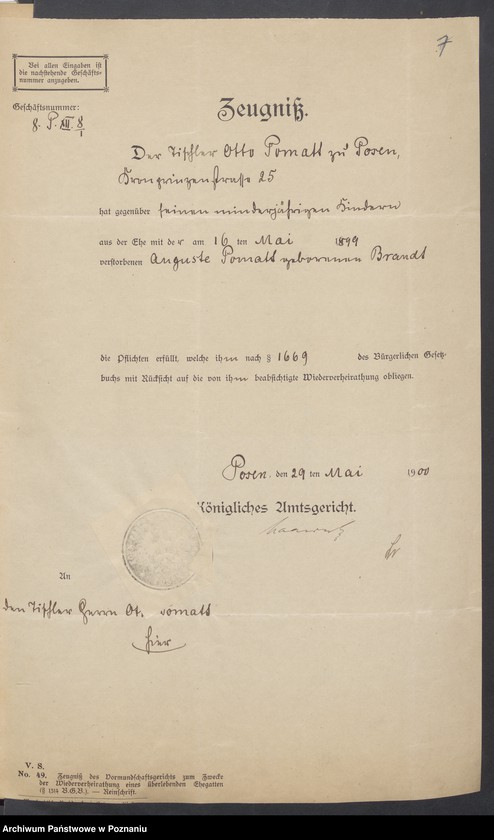 7
Bei allen Eingaben ist
die nachstehende Geschäfts-
nummer anzugeben.
Geschäftsnummer:
8. P. XIII. 8/1
Zeugniß.
Der Tischler Otto Pomatt zu Posen,
Kronprinzenstrasse 25
hat gegenüber seinen minderjährigen Kindern
aus der Ehe mit der am 16 ten Mai 1899
verstorbenen Auguste Pomatt geborenen Brandt
die Pflichten erfüllt, welche ihm nach § 1669 des Bürgerlichen Gesetz-
buchs mit Rücksicht auf die von ihm beabsichtigte Wiederverheirathung obliegen.
Posen, den 29 ten Mai 1900
Königliches Amtsgericht.
An
den Tischler Herrn Ot. Pomatt
hier
V. S.
No. 49. Zeugniß des Vormundschaftsgerichts zum Zwecke
der Wiederverheirathung eines überlebenden Ehegatten
(§ 1314 B.G.B.). — Reinschrift.
Archiwum Państwowe w Poznaniu